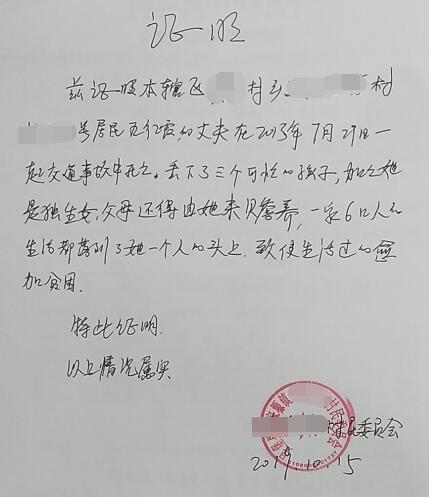 证明
兹证明本辖区 村乡 村
号居民 的丈夫在2013年7月29日一
起交通事故中死亡。丢下了三个可怜的孩子,加之她
是独生女,父母还得由她来赡养,一家6口人的
生活都落到了她一个人的头上,致使生活过的愈
加贫困.
特此证明.
以上情况属实
村民委员会
2019.10.15